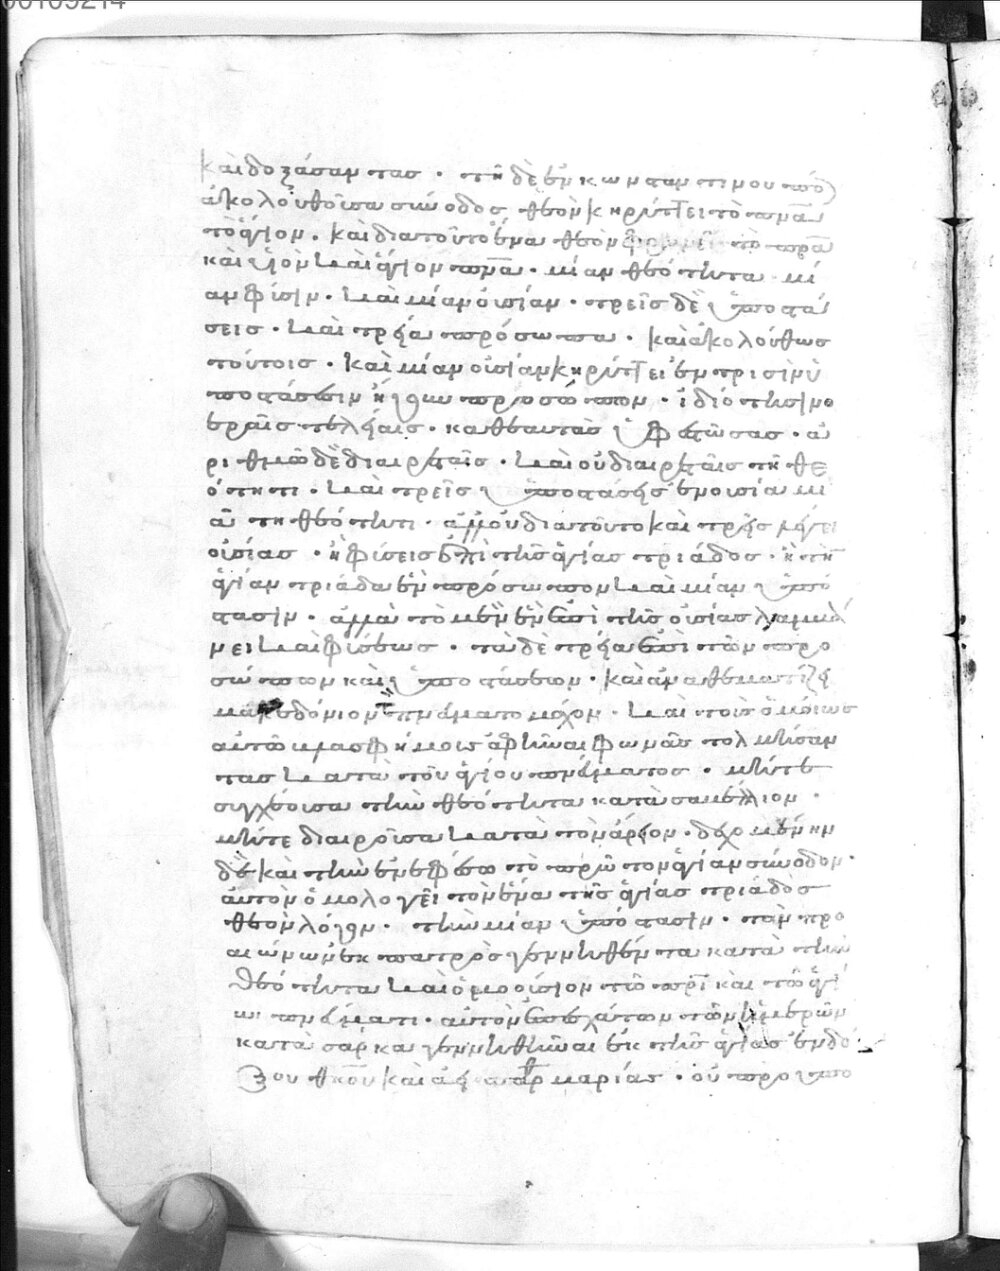 καὶ δοξάσαντας · τῆ δὲ ἐν κωνσταντινουπό
ἀκολουθοῦσα σύνοδος θεὸν κηρύττει τὸ πνᾶ
τὸ ἅγιον · καὶ διὰ τοῦτο ἕνα θεὸν
καὶ υἱὸν καὶ ἅγιον πνᾶ · μίαν θεότητα μί
αν φύσιν · καὶ μίαν οὐσίαν · τρεῖς δὲ ὑποστά
σεις · καὶ τρία πρόσωπα · καὶ ἀκολούθως
τούτοις · καὶ μίαν οὐσίαν κηρύττει ἐν τρισὶν ὑ
ποστάσεσιν ἤγουν προσώπων · ἰδιότησι νο
εραῖς τελείαις · καθ' ἑαυτὰς ὑφεστώσας · ἀ
ριθμῶ δὲ διαιρεταῖς · καὶ οὐ διαιρεταῖς τῆ θε
ότητι · καὶ τρεῖς ὑποστάσεις ἐν οὐσία μι
ᾶ τῆ θεότητι · ἀλλ' οὐ διὰ τοῦτο καὶ τρεῖς λέγει
οὐσίας · ἢ φύσεις ἐπὶ τῆς ἁγίας τριάδος · ἢ τὴν
ἁγίαν τριάδα ἓν πρόσωπον καὶ μίαν ὑπό
στασιν · ἀλλὰ τὸ μὲν ἓν ἐπὶ τῆς οὐσίας λαμβά
νει καὶ φύσεως · τὰ δὲ τρία ἐπὶ τῶν προ
σώπων καὶ ὑποστάσεων · καὶ ἀναθεματίζει
μακεδόνιον τὸν πνευματομάχον · καὶ τοὺς ὁμοίως
αὐτῶ βλασφήμους ἀφεῖναι φωνὰς τολμήσαν
τας κατὰ τοῦ ἁγίου πνεύματος · μήτε
συγχέουσα τὴν θεότητα κατὰ σαβέλλιον ·
μήτε διαιροῦσα κατὰ τὸν ἄρειον · δέχομαι
δὲ καὶ τὴν ἐν ἐφέσω τὸ πρῶτον ἁγίαν σύνοδον ·
αὐτὸν ὁμολογεῖ τὸν ἕνα τῆς ἁγίας τριάδος
θεὸν λόγον · τὴν μίαν ὑπόστασιν · τὸν πρὸ
αἰώνων ἐκ πατρὸς γεννηθέντα κατὰ τὴν
θεότητα καὶ ὁμοούσιον τῶ πρὶ καὶ τῶ ἁγί
ω πνεύματι · αὐτὸν ἐπ' ἐσχάτων τῶν ἡμερῶν
κατὰ σάρκα γεννηθῆναι ἐκ τῆς ἁγίας ἐνδό
ξου θκου καὶ ἀειπαρ μαρίας · οὐ προϋπο